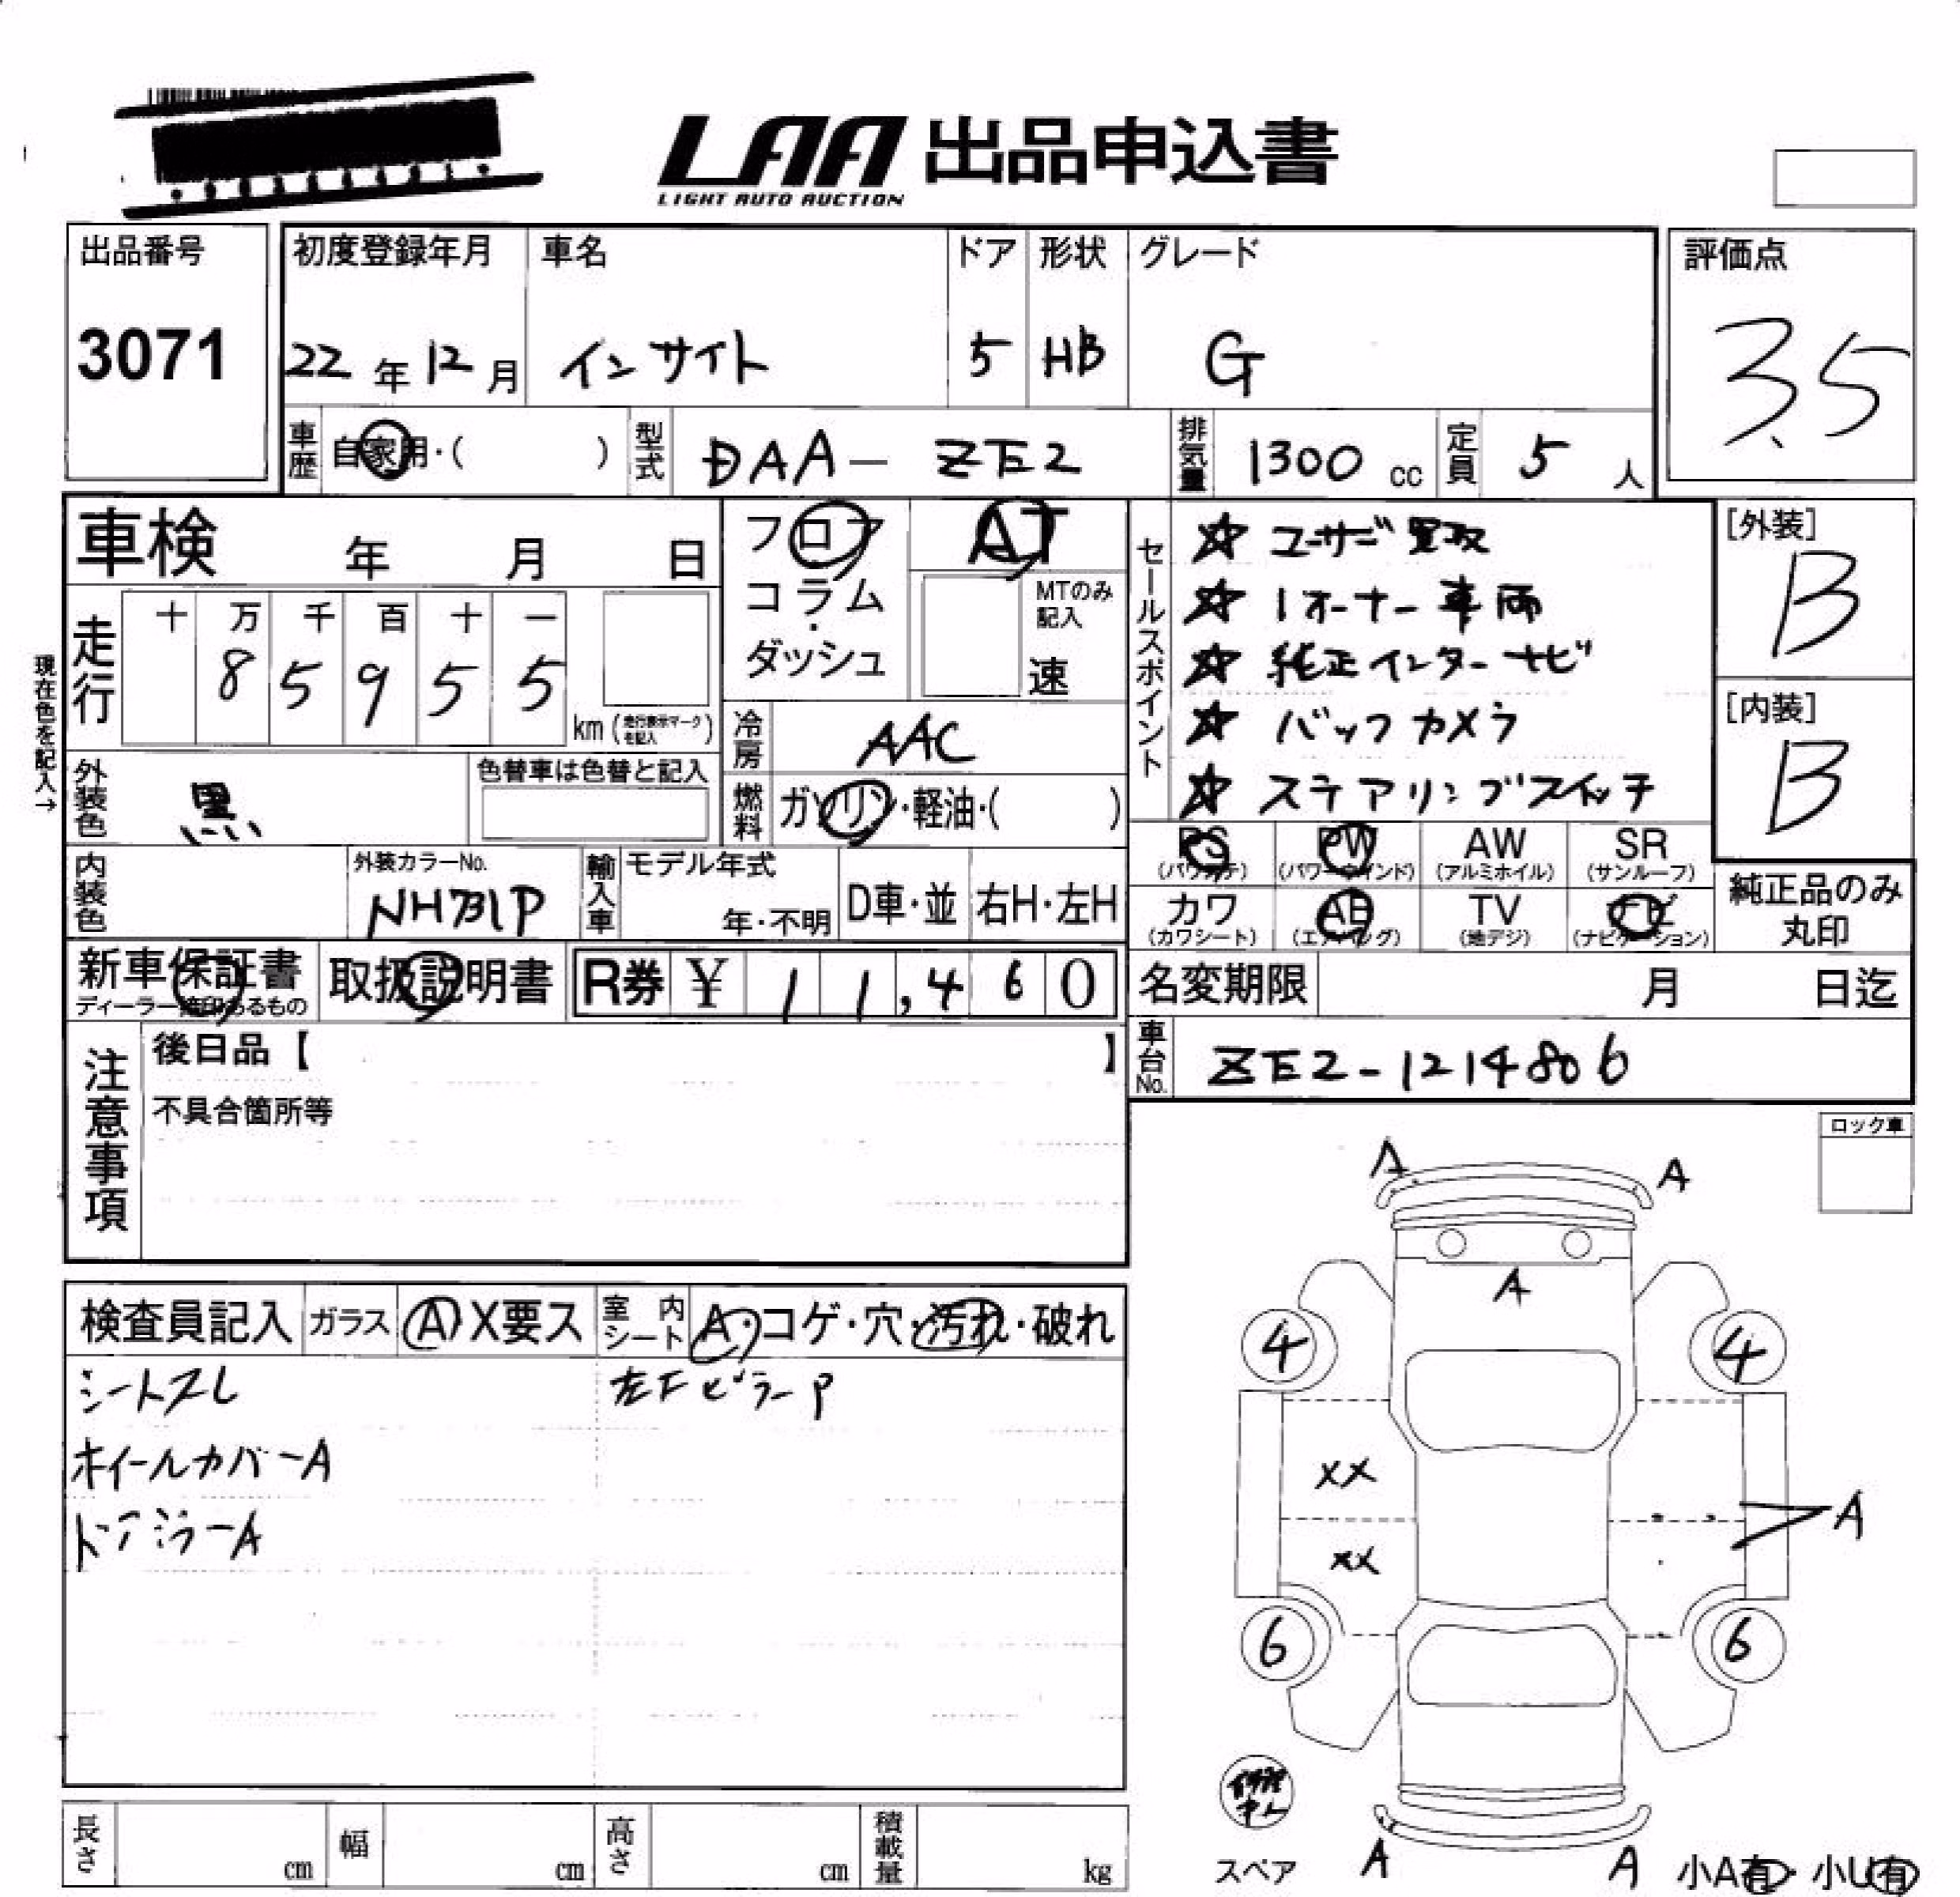 LAA 出品申込書
LIGHT AUTO AUCTION
出品番号 初度登録年月 車名 ドア 形状 グレード 評価点
3071 22年12月 インサイト 5 HB G 3.5
車歴 自家用・( ) 型式 DAA-ZE2 排気量 1300cc 定員 5人
車検 年 月 日 フロア AT
コラム・ MTのみ記入
ダッシュ 速
走行 十 万 千 百 十 一
8 5 9 5 5 km (走行表示マークを記入)
現在色を記入→
冷房 AAC
外装色 黒 色替車は色替と記入
燃料 ガソリン・軽油・( )
セールスポイント
☆ ユーザー買取
☆ 1オーナー車両
☆ 純正インターナビ
☆ バックカメラ
☆ ステアリングスイッチ
[外装]
B
[内装]
B
内装色 外装カラーNo. NH731P 輸入車 モデル年式 年・不明 D車・並 右H・左H
PS (パワステ) PW (パワーウインド) AW (アルミホイル) SR (サンルーフ)
カワ (カワシート) AB (エアバッグ) TV (地デジ) ナビ (ナビゲーション)
純正品のみ
丸印
新車保証書 取扱説明書 R券 ¥ 11,460
ディーラー捺印あるもの
名変期限 月 日迄
車台No. ZE2-1214806
注意事項
後日品【 】
不具合箇所等
ロック車
検査員記入 ガラス A X要ス 室内シート A・コゲ・穴・汚れ・破れ
シートスレ 左FピラーP
ホイールカバーA
ドアミラーA
A A
A
4 4
XX
XX A
6 6
スペア A A 小A有・小U有
長さ cm 幅 cm 高さ cm 積載量 kg